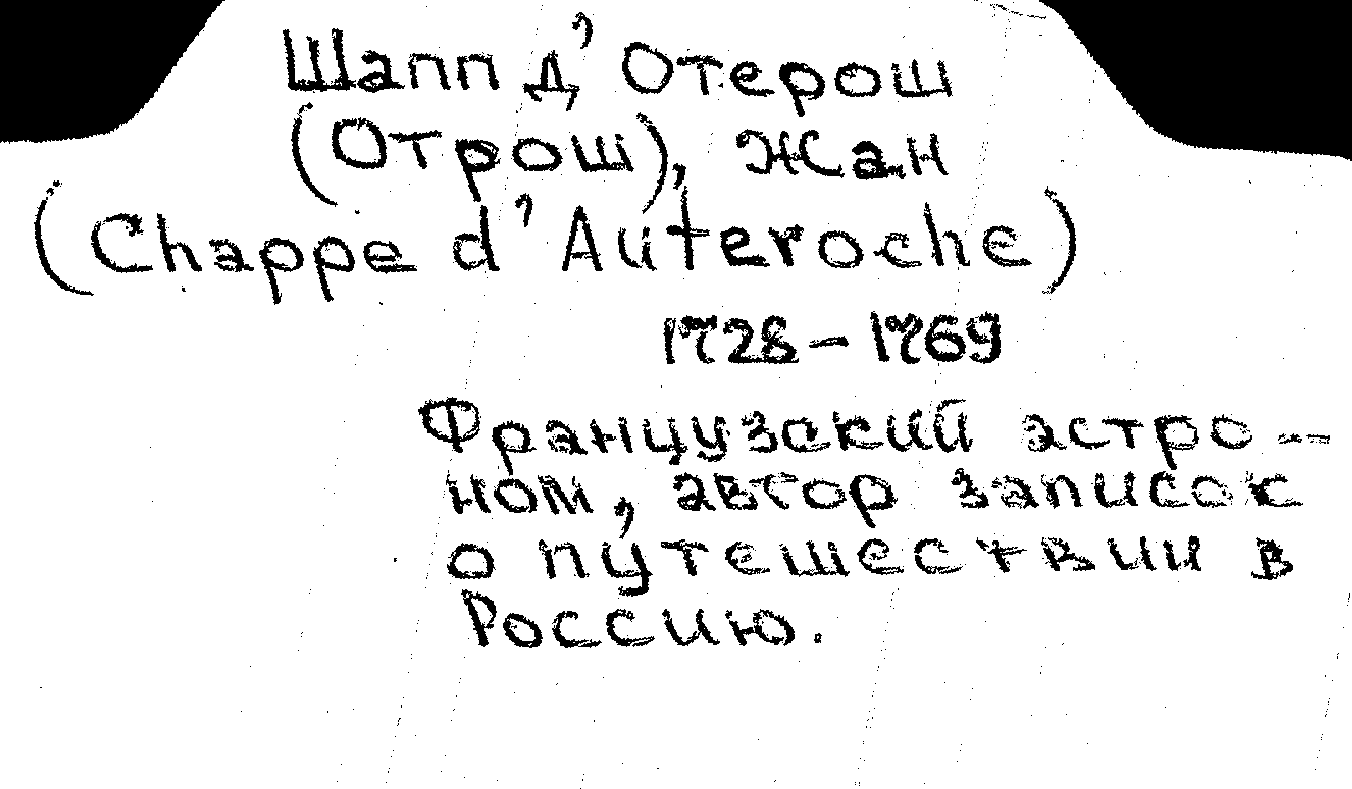 Шапп д'Отерош
(Отрош), Жан
(Chappe d'Auteroche)
1728–1769
Французский астро-
ном, автор записок
о путешествии в
Россию.